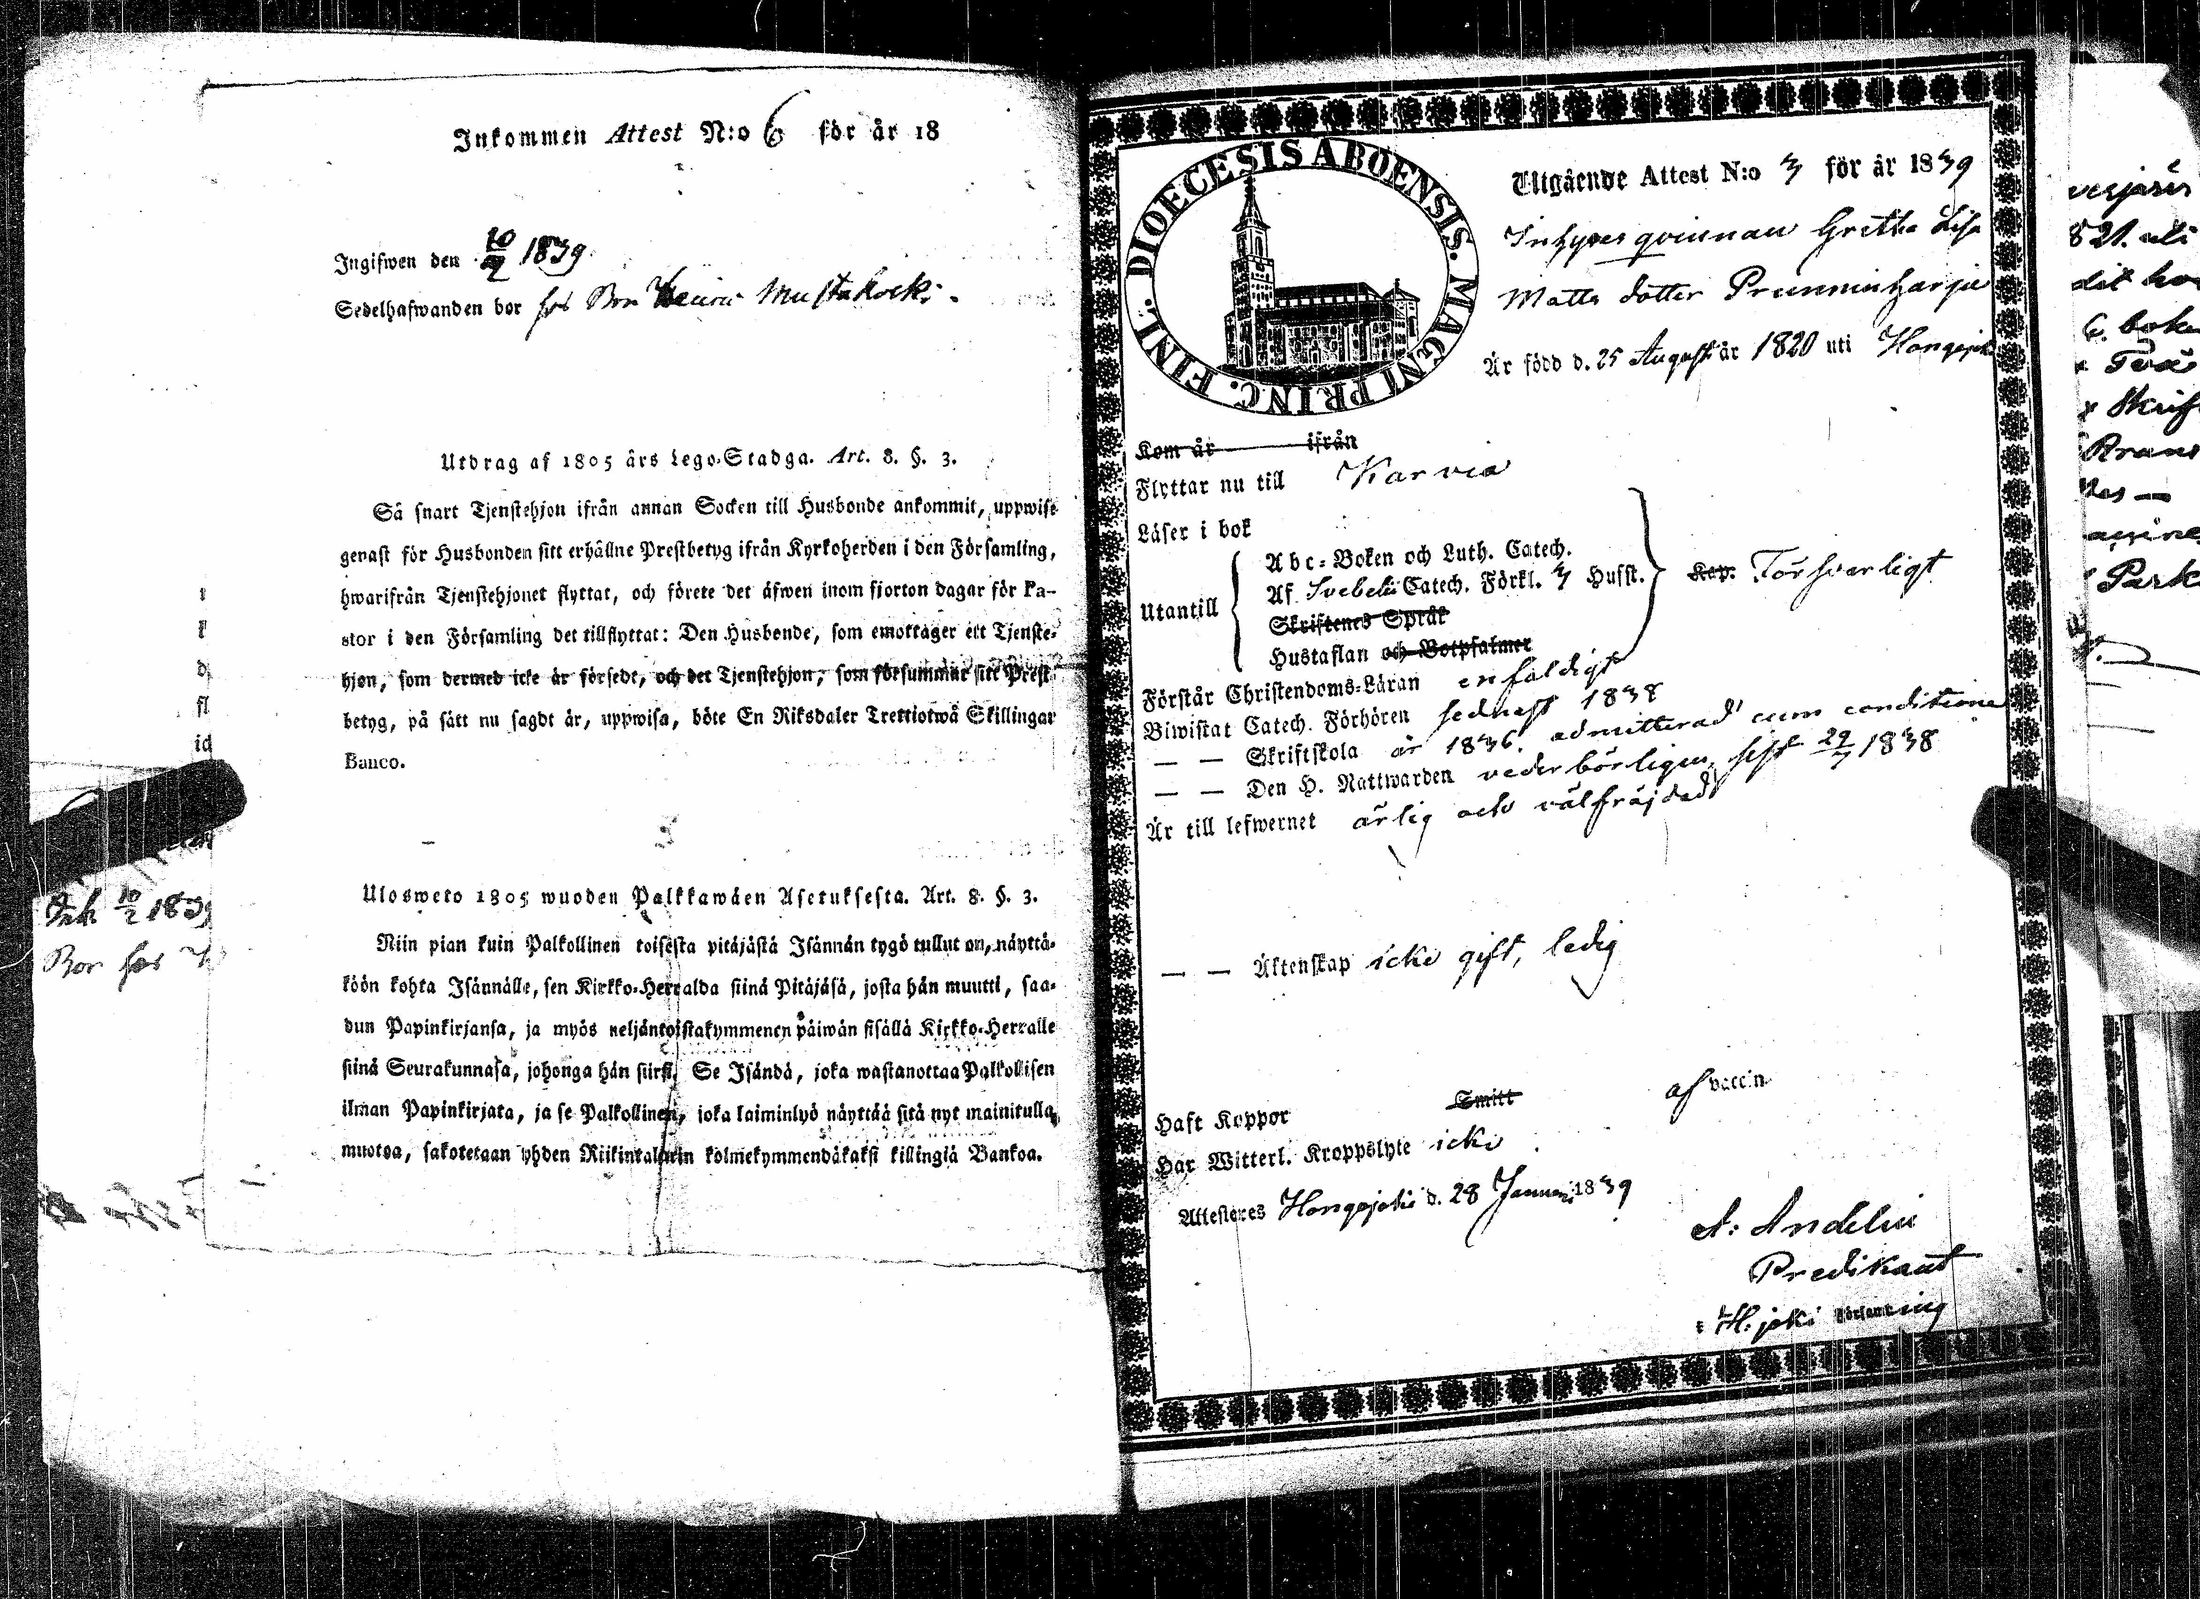 Inkommen Attest N:o 6 för år 18
Ingifwen den 10/2 1839
Sedelhafwanden bor hos Bon Mustakoski
Utdrag af 1805 års Lego-Stadga. Art. 8. §. 3.
Så snart Tjenstehjon ifrån annan Socken till Husbonde ankommit, uppwise
genast för Husbonden sitt erhållne Prestbetyg ifrån Kyrkoherden i den Församling,
hwarifrån Tjenstehjonet flyttat, och förete det äfwen inom fjorton dagar för Pa-
stor i den Församling det tillflyttat: Den Husbonde, som emottager ett Tjenste-
hjon, som dermed icke är försedt, och det Tjenstehjon, som försummar sitt Prest-
betyg, på sätt nu sagdt är, uppwisa, böte En Riksdaler Trettiotwå Skillingar
Banco.
Ink 10/2 1839
Bor hos
Ulosweto 1805 wuoden Palkkawäen Asetuksesta. Art. 8. §. 3.
Niin pian kuin Palkollinen toisesta pitäjästä Isännän tygö tullut on, näyttä-
köön kohta Isännälle, sen Kirkko-Herralda siinä Pitäjäsä, josta hän muutti, saa-
dun Papinkirjansa, ja myös neljäntoistakymmenen päiwän sisällä Kirkko-Herralle
siinä Seurakunnasa, johonga hän siirsi. Se Isändä, joka wastanottaa Palkollisen
ilman Papinkirjata, ja se Palkollinen, joka laiminlyö näyttää sitä nyt mainitulla
muotoa, sakotetaan yhden Riikintalarin kolmekymmendäkaksi killingiä Bankoa.
DIOECESIS ABOENSIS. MAGNI PRINC. FINL.
Utgående Attest N:o 3 för år 1839
Inhyses qvinnan Gretha Lisa
Matts dotter Prunninharju
Är född d. 25 August år 1820 uti Hongojoki
Kom år ifrån
Flyttar nu till Karvia
Läser i bok
Utantill
Abc-Boken och Luth. Catech.
Af Svebelii Catech. Förkl. 3 Husst.
Skriftenes Språk
Hustaflan och Botpsalmer
Kap. Försvarligt
Förstår Christendoms-Läran enfaldigt
Biwistat Catech. Förhören sednast 1838
— — Skriftskola år 1836. admitterad cum conditione
— — Den H. Nattwarden vederbörligen, sist 29/7 1838
Är till lefwernet ärlig och välfräjdad
— — Äktenskap icke gift, ledig
Haft Koppor Smitt af vaccin
Har Witterl. Kroppslyte icke
Attesteres Hongojoki d. 28 Januari 1839
A: Andelin
Predikant
i H:joki Församling